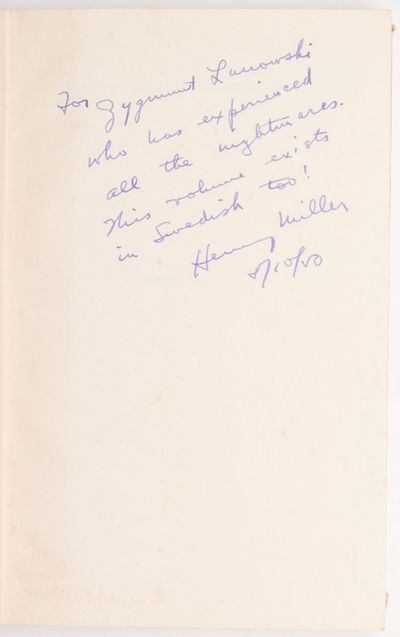 For Zygmunt Lanowski
who has experienced
all the nightmares.
This volume exists
in Swedish too!
Henry Miller
8/10/50